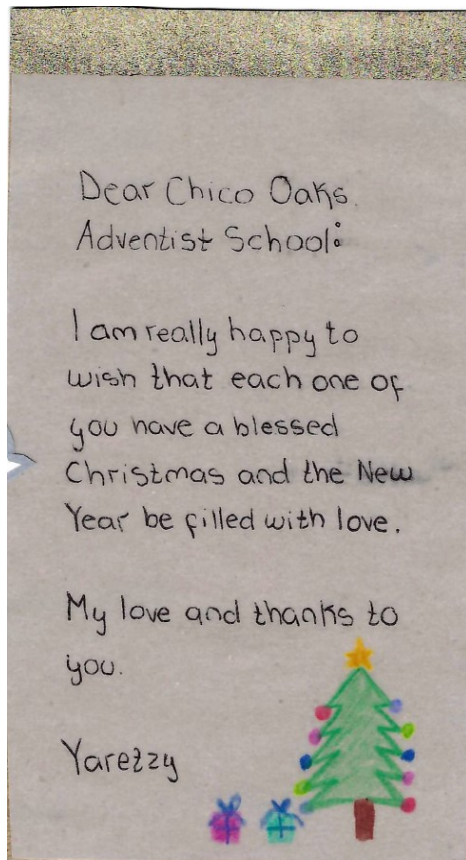 Dear Chico Oaks
Adventist School:
I am really happy to
wish that each one of
you have a blessed
Christmas and the New
Year be filled with love.
My love and thanks to
you.
Yarezzy